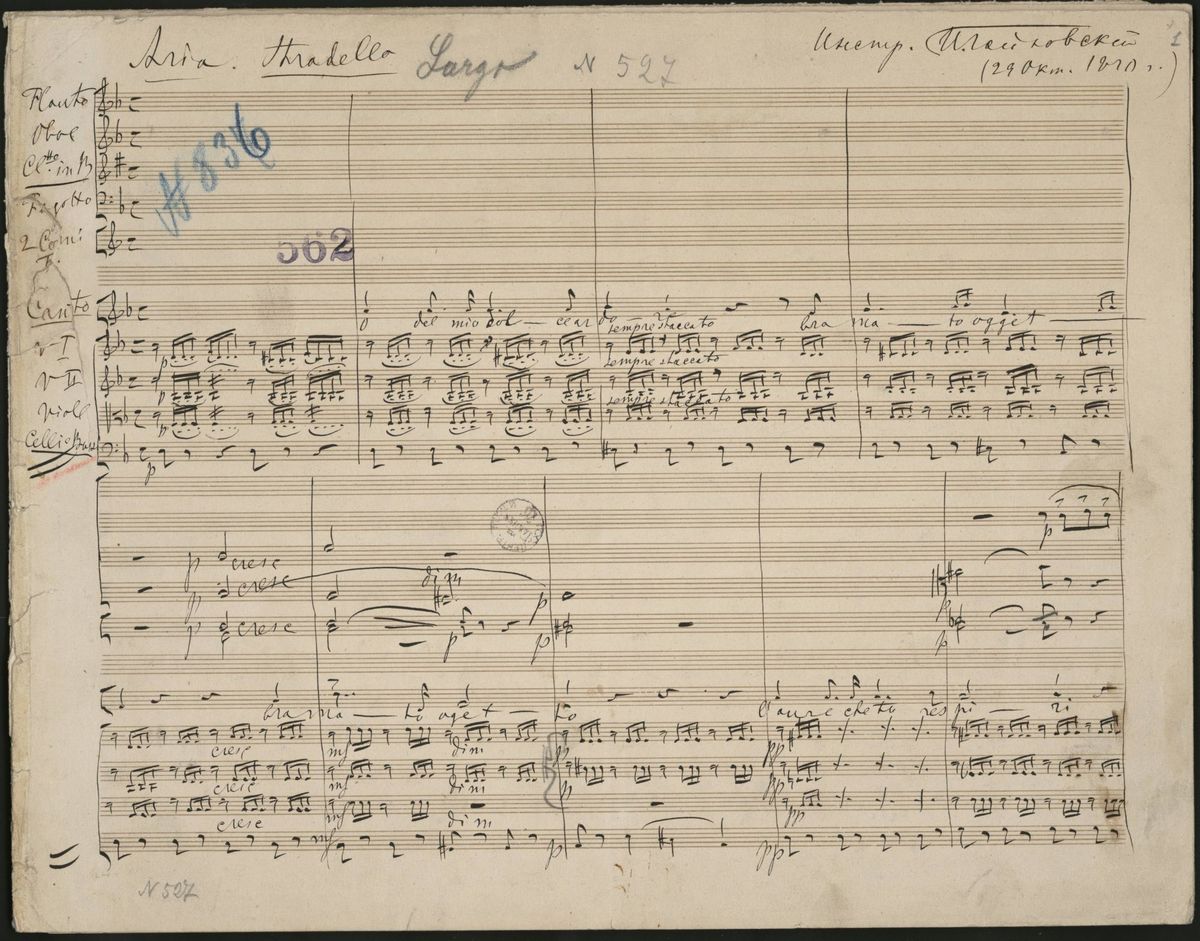 Aria. Stradello Largo N 527
Инстр. Чайковскій 1
(29 Окт. 1870 г.)
Flauto
Oboe
Cl.tto in B
Fagotto
2 Corni
F.
№ 836
562
Canto
O del mio dol — ce ar do — r bra ma — to ogget —
V I
sempre staccato
p
V II
sempre staccato
p
Viole
sempre staccato
p
Celli e Bassi
p
p
p cresc
p cresc dim p
p cresc p p p
bra ma — to oget — to l'aure che tu respi — ri
cresc mf dim pp pp
cresc mf dim p pp
cresc mf dim pp
mf p pp
N 527